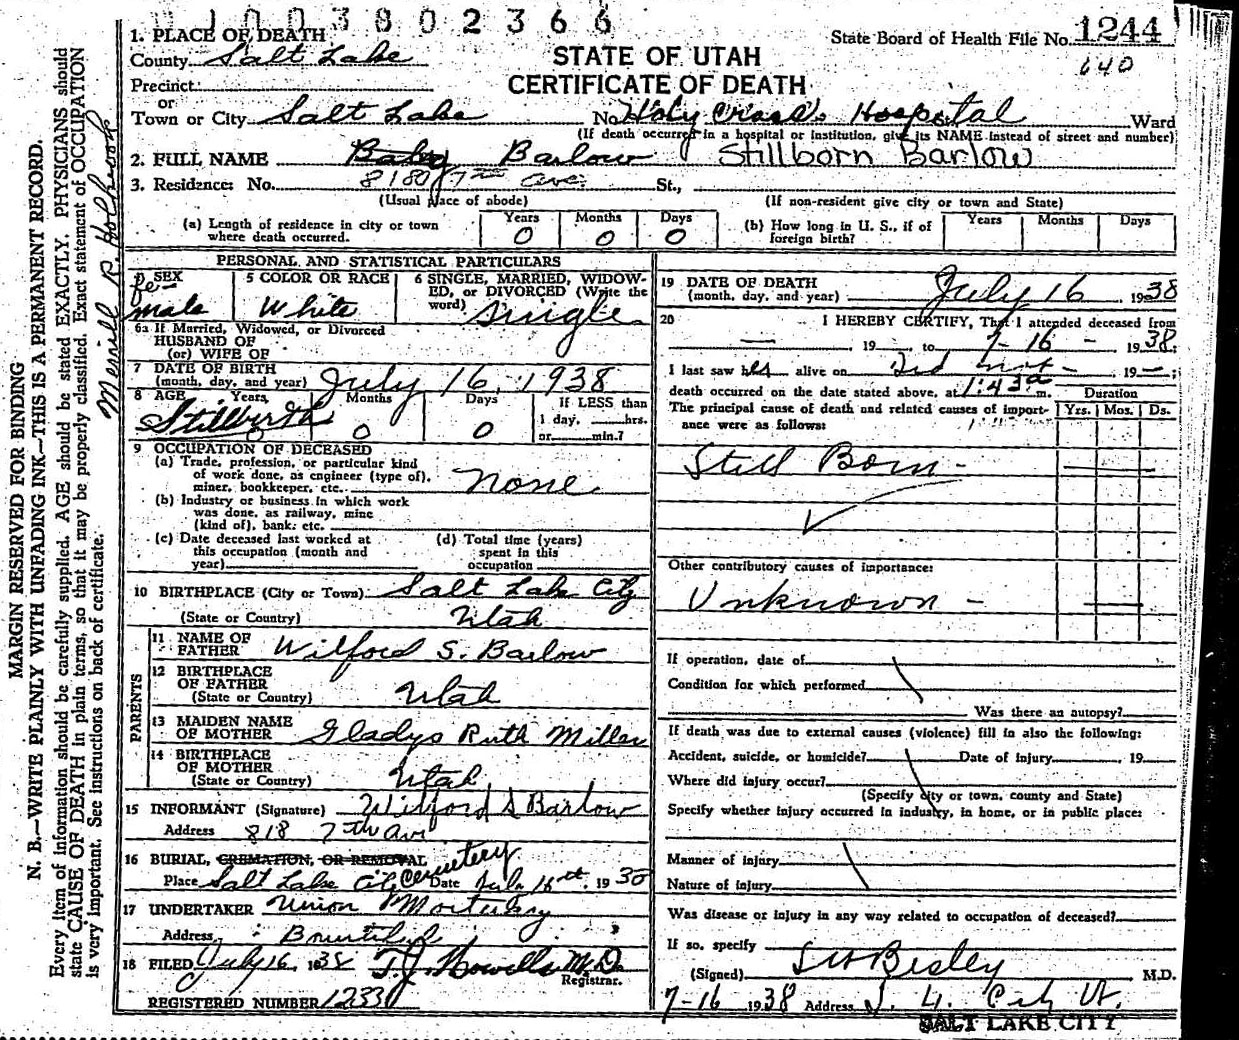 1003802366
1. PLACE OF DEATH
County Salt Lake
Precinct
or
Town or City Salt Lake
STATE OF UTAH
CERTIFICATE OF DEATH
State Board of Health File No. 1244
640
No. Holy Cross Hospital Ward
(If death occurred in a hospital or institution, give its NAME instead of street and number)
2. FULL NAME Baby Barlow Stillborn Barlow
3. Residence: No. 818 7th Ave. St.,
(Usual place of abode) (If non-resident give city or town and State)
(a) Length of residence in city or town where death occurred. Years 0 Months 0 Days 0
(b) How long in U. S., if of foreign birth? Years Months Days
PERSONAL AND STATISTICAL PARTICULARS
SEX fe-male
5 COLOR OR RACE White
6 SINGLE, MARRIED, WIDOWED, or DIVORCED (Write the word) Single
6a If Married, Widowed, or Divorced
HUSBAND OF
(or) WIFE OF
7 DATE OF BIRTH
(month, day, and year) July 16, 1938
8 AGE Years Months Days If LESS than
Stillbirth 0 0 0 1 day, hrs.
or min.?
9 OCCUPATION OF DECEASED
(a) Trade, profession, or particular kind
of work done, as engineer (type of),
miner, bookkeeper, etc. none
(b) Industry or business in which work
was done, as railway, mine
(kind of), bank: etc.
(c) Date deceased last worked at
this occupation (month and
year)
(d) Total time (years)
spent in this
occupation
10 BIRTHPLACE (City or Town) Salt Lake City
(State or Country) Utah
PARENTS
11 NAME OF FATHER Wilford S. Barlow
12 BIRTHPLACE OF FATHER
(State or Country) Utah
13 MAIDEN NAME OF MOTHER Gladys Ruth Miller
14 BIRTHPLACE OF MOTHER
(State or Country) Utah
15 INFORMANT (Signature) Wilford S Barlow
Address 818 7th Ave
16 BURIAL, CREMATION, OR REMOVAL
Place Salt Lake City Cemetery Date 16th, 19
17 UNDERTAKER Union Mortuary
Address Bountiful
18 FILED July 16, 1938 T. J. Howells M.D.
Registrar.
REGISTERED NUMBER 1233
19 DATE OF DEATH
(month, day, and year) July 16, 1938
20 I HEREBY CERTIFY, That I attended deceased from
— 19 — to 7-16 - 1938;
I last saw alive on Did not - 19 —;
death occurred on the date stated above, at 1:43 a m.
The principal cause of death and related causes of importance were as follows:
Duration
Yrs. Mos. Ds.
Still Born -
Other contributory causes of importance:
Unknown -
If operation, date of
Condition for which performed
Was there an autopsy?
If death was due to external causes (violence) fill in also the following:
Accident, suicide, or homicide? Date of injury 19
Where did injury occur?
(Specify city or town, county and State)
Specify whether injury occurred in industry, in home, or in public place:
Manner of injury
Nature of injury
Was disease or injury in any way related to occupation of deceased?
If so, specify
(Signed) Besley M.D.
7-16 1938 Address S. L. City Ut.
SALT LAKE CITY
MARGIN RESERVED FOR BINDING
N. B.—WRITE PLAINLY WITH UNFADING INK—THIS IS A PERMANENT RECORD.
Every item of information should be carefully supplied. AGE should be stated EXACTLY. PHYSICIANS should
state CAUSE OF DEATH in plain terms, so that it may be properly classified. Exact statement of OCCUPATION
is very important. See instructions on back of certificate.
Merrill R.